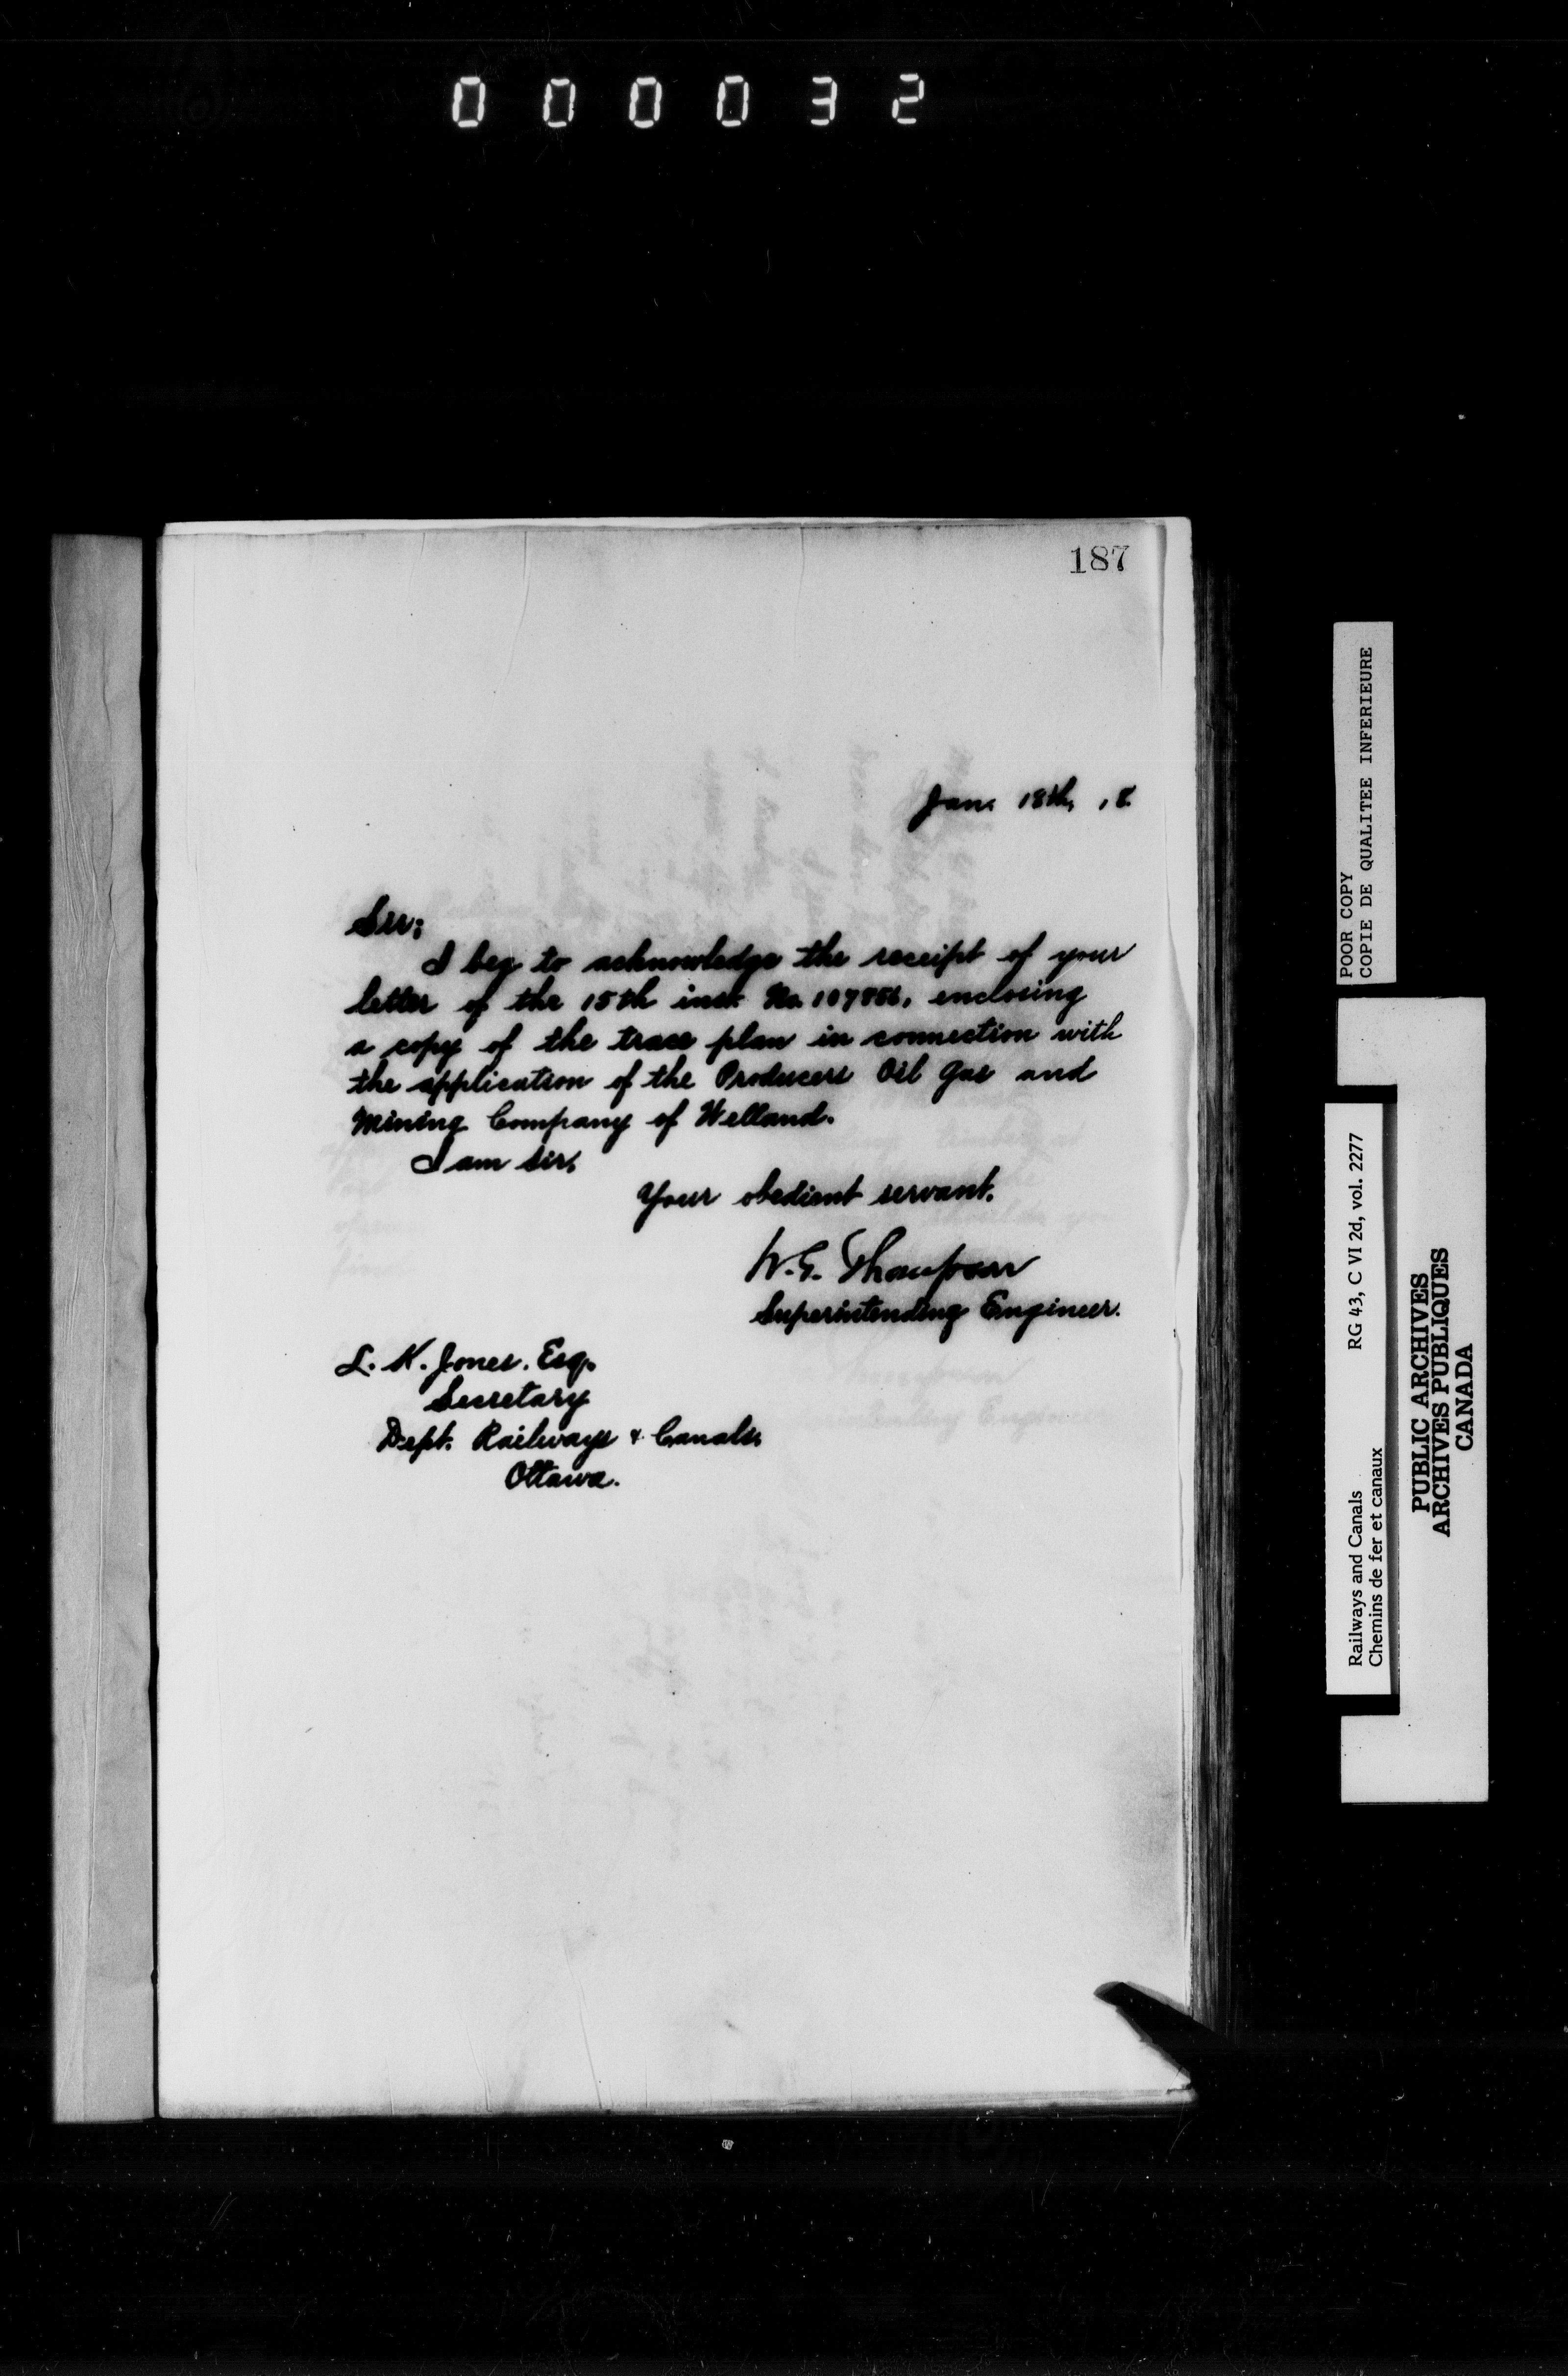 000032
187
Jan. 18th, 18
Sir;
I beg to acknowledge the receipt of your
letter of the 15th inst. No. 107856, enclosing
a copy of the trace plan in connection with
the application of the Producers Oil Gas and
Mining Company of Welland.
I am sir,
Your obedient servant.
W.G. Thompson
Superintending Engineer.
L. K. Jones. Esq.
Secretary
Dept. Railways & Canals,
Ottawa.
POOR COPY
COPIE DE QUALITEE INFERIEURE
Railways and Canals RG 43, C VI 2d, vol. 2277
Chemins de fer et canaux
PUBLIC ARCHIVES
ARCHIVES PUBLIQUES
CANADA